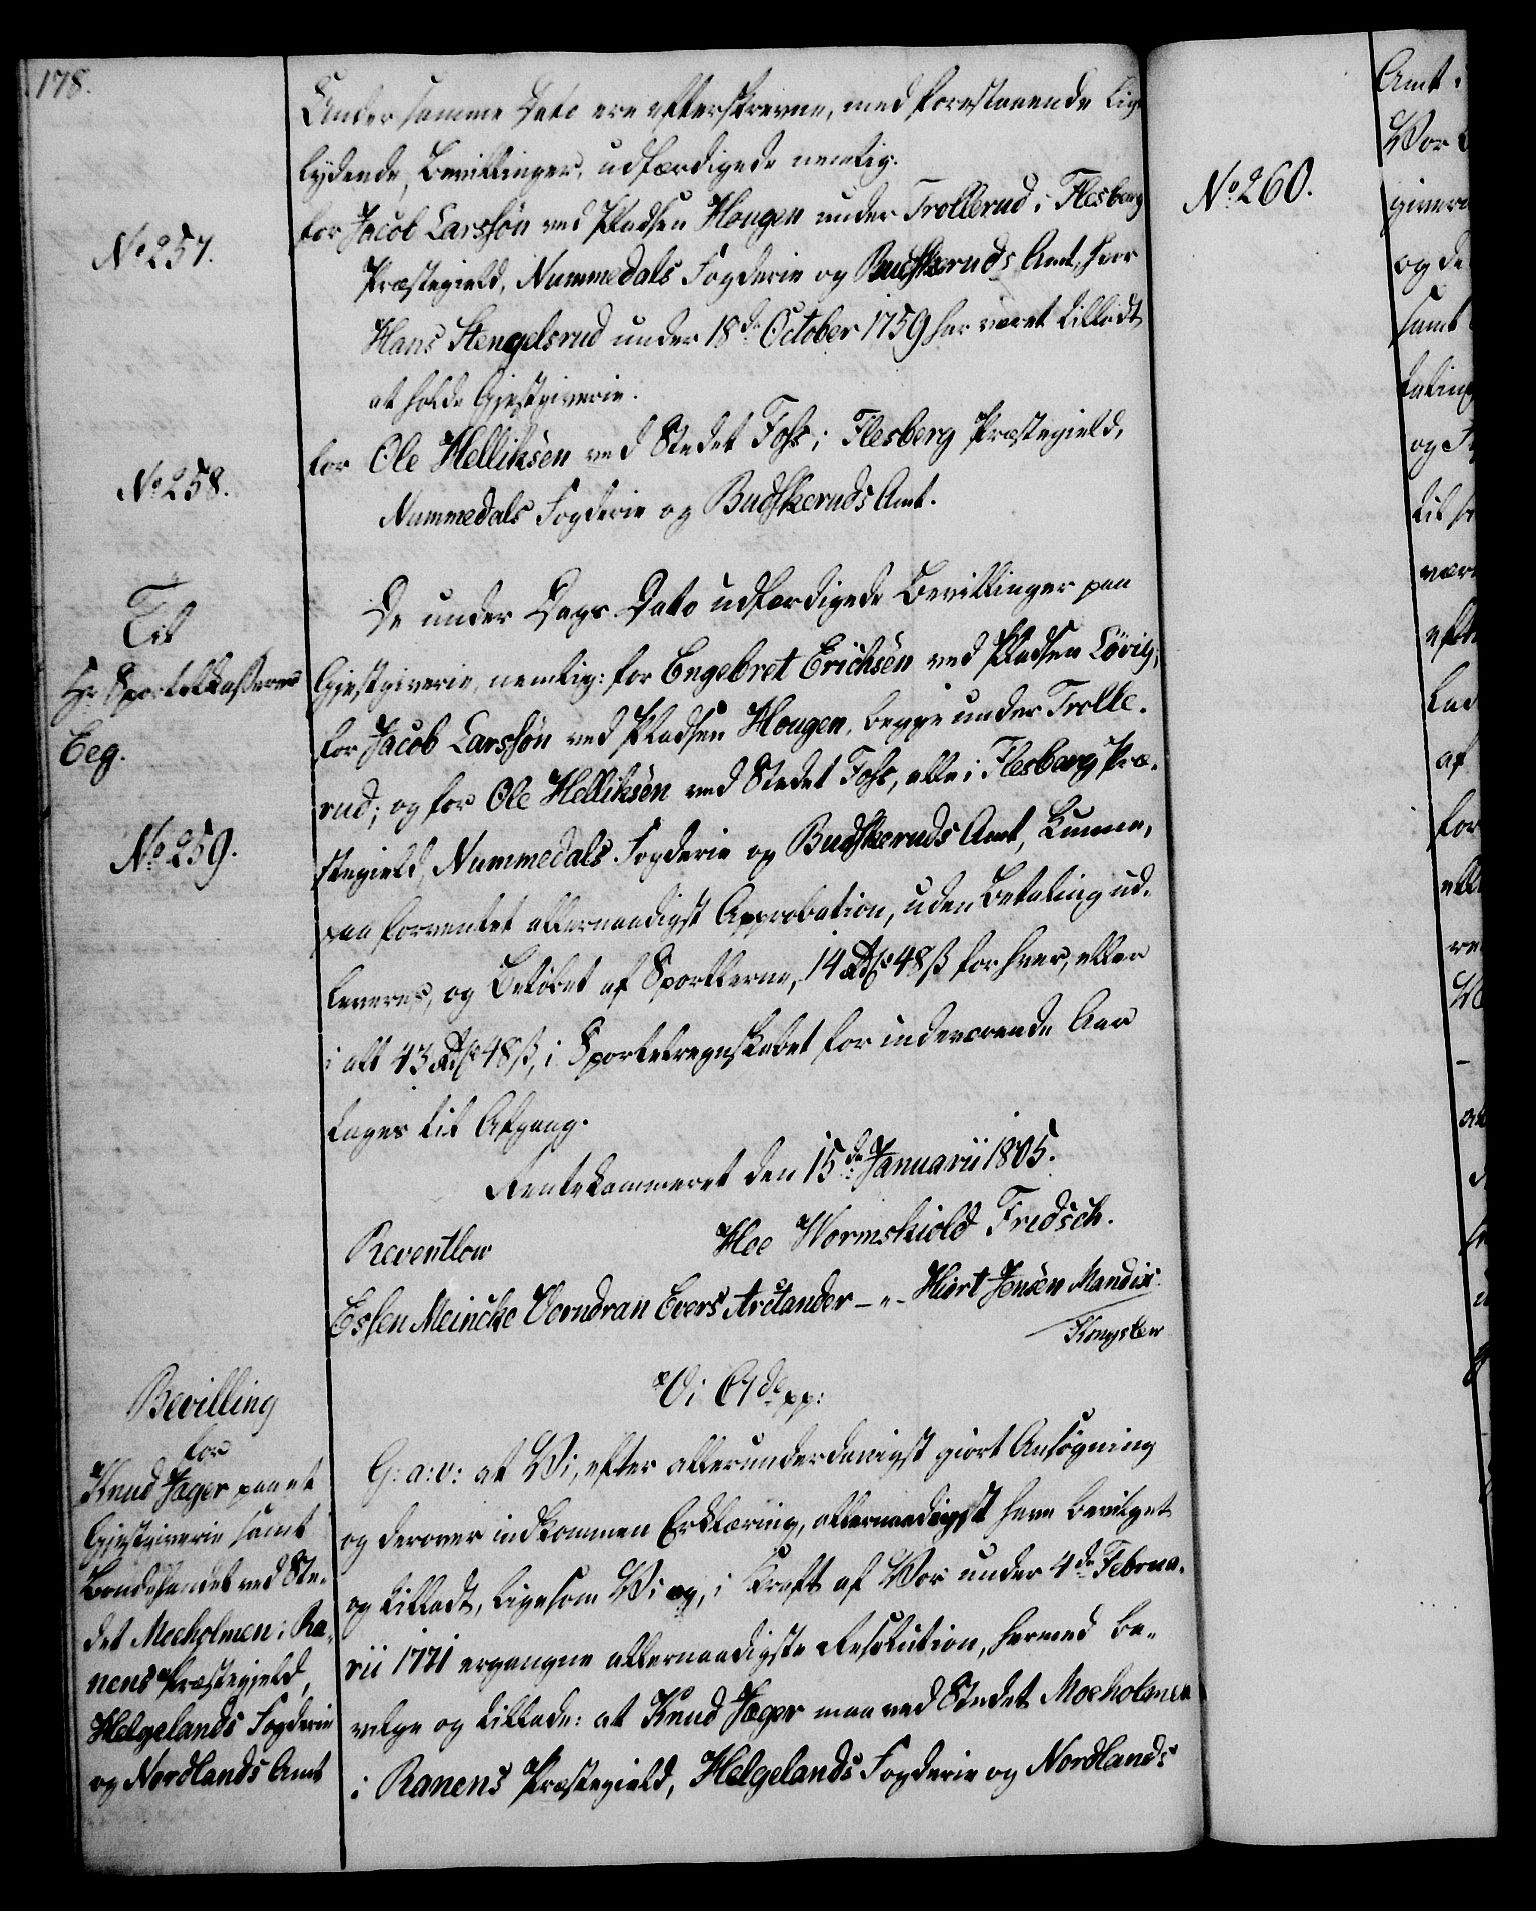 178.
Under samme Dato ere efterskrevne, med forestaaende lige
lydende, Bevillinger, udfærdigede nemlig.
No 257.
for Jacob Larssøn ved Pladsen Hougen under Trollerud i Flesberg
Præstegield, Nummedals Fogderie og Budskeruds Amt, hvor
Hans Stengelsrud under 18de October 1759 har været tilladt
at holde Gjestgiverie.
No 258.
for Ole Helliksen ved Stedet Foss i Flesberg Præstegield,
Nummedals Fogderie og Budskeruds Amt.
Til
Hr. Sportelkasserer
Eeg.
No 259.
De under Dags Dato udfærdigede Bevillinger paa
Gjestgiverie, nemlig: for Engebret Erichsen ved Pladsen Lövig,
for Jacob Larssøn ved Pladsen Hougen, begge under Trolle-
rud; og for Ole Helliksen ved Stedet Foss, alle i Flesberg Præ-
stegield, Nummedals Fogderie og Budskeruds Amt, kunne,
paa forventet allernaadigst Approbation, uden Betaling ud-
leveres, og Beløbet af Sportlerne, 14 Rdr 48 ß for hver, eller
i alt 43 Rdr 48 ß, i Sportelregnskabet for indeværende Aar
tages til Afgang.
Rentekammeret den 15de Januarii 1805.
Reventlow Hoe Wormskiold Fridsch.
Essen Meincke Vorndran Evers Arctander - " - Hiort Jensen Mandix
Kongslew
Bevilling
for
Knud Jæger paa et
Gjestgiverie samt
Bondehandel ved Ste-
det Moeholmen i Ra-
nens Præstegjeld,
Helgelands Fogderie
og Nordlands Amt
Vi C 7de pp:
G: a: v: at Vi, efter allerunderdanigst giort Ansøgning
og derover indkommen Erklæring, allernaadigst have bevilget
og tilladt, ligesom Vi og, i Kraft af Vor under 4de Februa-
rii 1771 ergangne allernaadigste Resolution, hermed be-
vilge og tillade: at Knud Jæger maa ved Stedet Moeholmen
i Ranens Præstegield, Helgelands Fogderie og Nordlands
No 260.
Amt
Vor
givere
og de
samt
og
til
være
efte
lad
af
for
elle